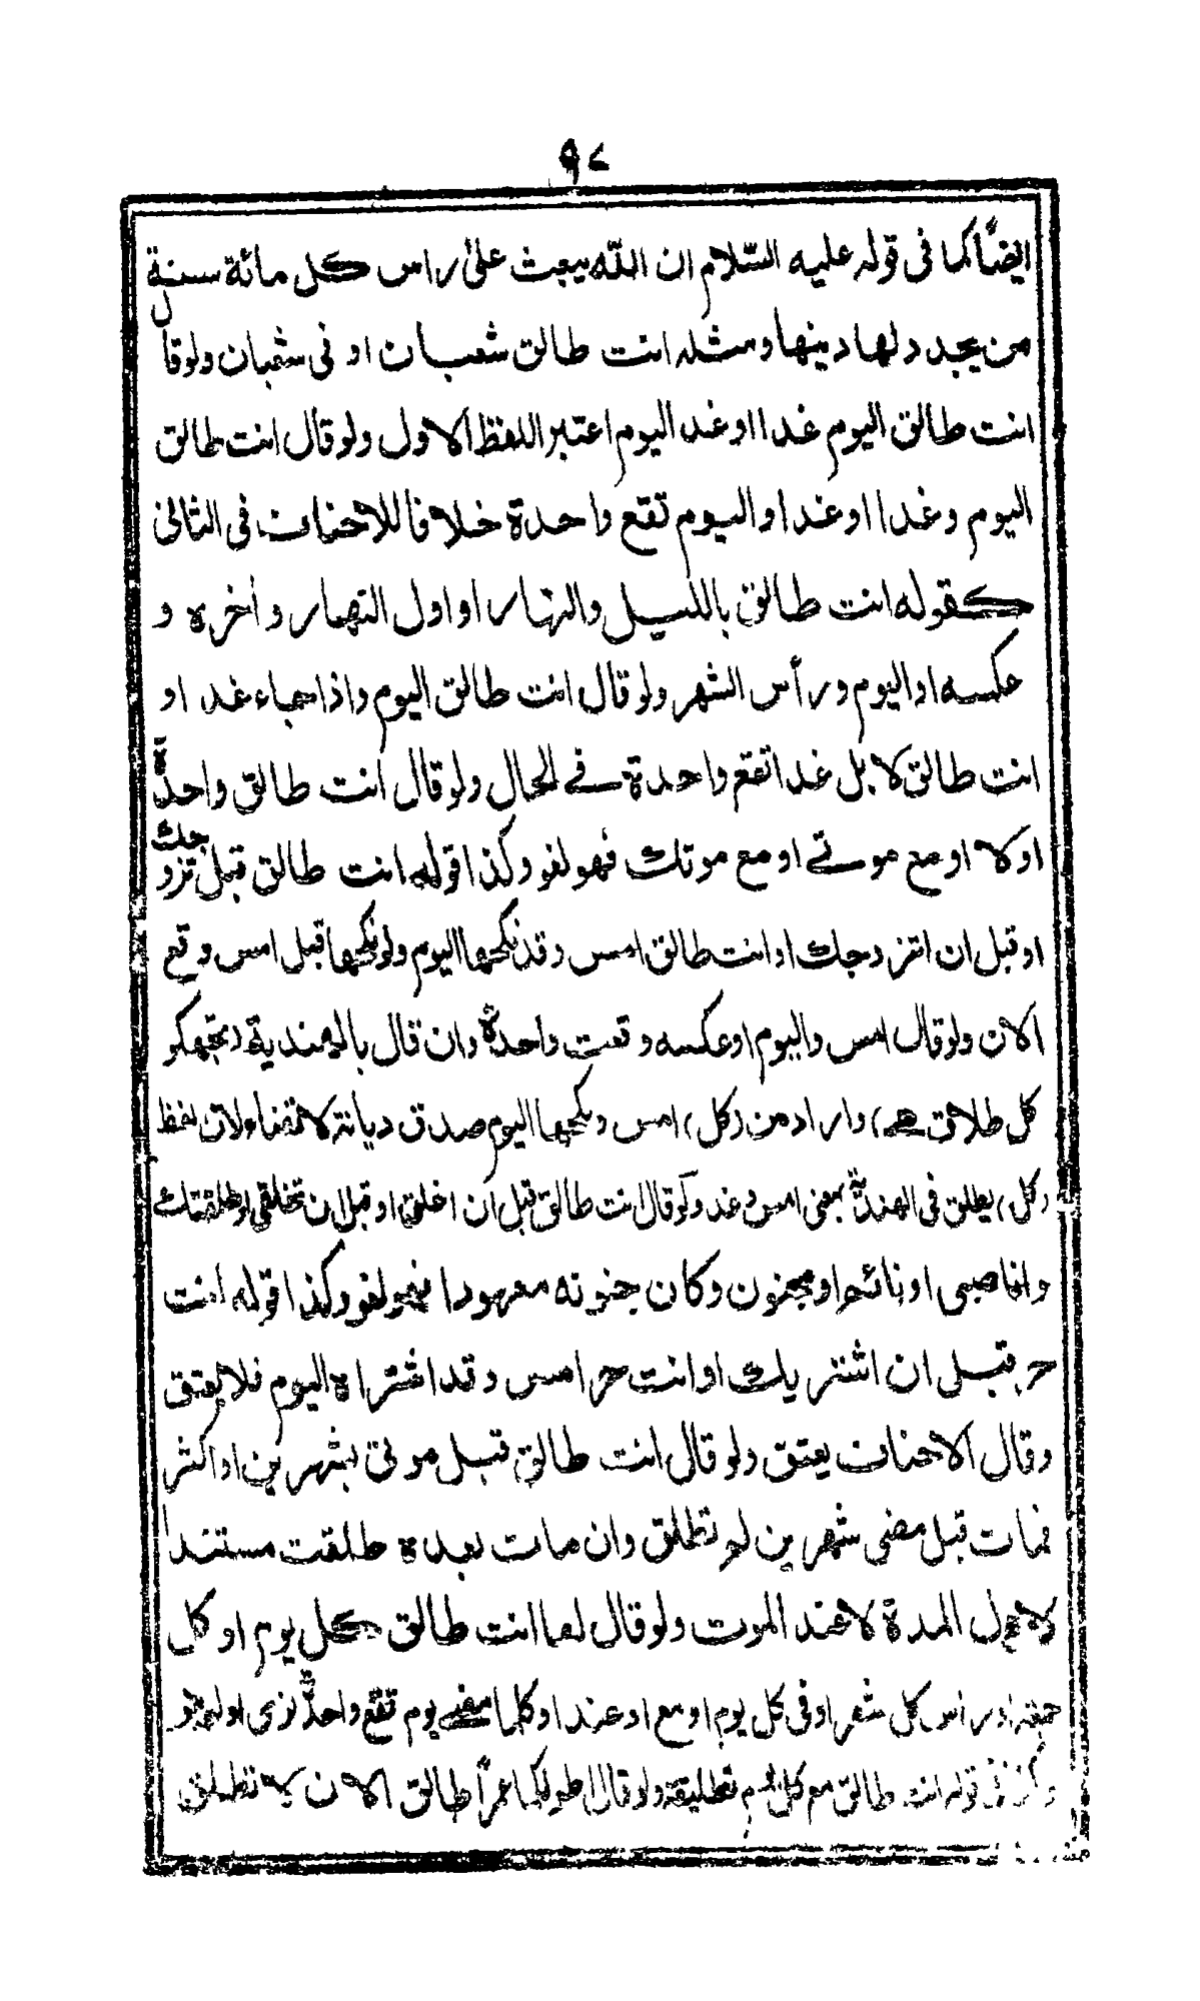 ٩٧
ايضًا كما فى قوله عليه السّلام ان اللّه يبعث علىٰ راس كل مائة سنة
من يجدد لها دينها ومثله انت طالق شعبان او فى شعبان ولوقال
انت طالق اليوم غدا او غد اليوم اعتبر اللفظ الاول ولوقال انت طالق
اليوم وغدا او غدا واليوم تقع واحدة خلافا للاحناف فى الثانى
كقوله انت طالق بالليل والنهار او اول النهار و اخره و
عكسه او اليوم و رأس الشهر ولوقال انت طالق اليوم واذا جاء غد او
انت طالق لا بل غدا تقع واحدة فے الحال ولوقال انت طالق واحدةً
اولا او مع موتے او مع موتك فهو لغو وكذا قوله انت طالق قبل تزوجك
او قبل ان اتزوجك او انت طالق امس وقد نكحها اليوم ولونكحها قبل امس وقع
الان ولوقال امس واليوم او عكسه وقعت واحدة وان قال بالهندية (تجهكو
كل طلاق هے) واراد من (كل) امس ونكحها اليوم صدق ديانة لا قضاء لان لفظ
(كل) يطلق فى الهندية بمعنى امس وغد ولوقال انت طالق قبل ان اخلق او قبل ان تخلقى او طلقتك
وانا صبى او نائم او مجنون وكان جنونه معهودا فهو لغو وكذا قوله انت
حر قبل ان اشتريك او انت حر امس وقد اشتراه اليوم فلا يعتق
وقال الاحناف يعتق ولوقال انت طالق قبل موتى بشهرين او اكثر
فمات قبل مضى شهرين لم تطلق وان مات بعده طلقت مستندا
لاول المدة لا عند الموت ولوقال لها انت طالق كل يوم او كل
جمعة او راس كل شهر او فى كل يوم او مع او عند او كلما مضے يوم تقع واحدة نوى او لم ينو
قوله انت طالق مع كل يوم تطليقة ولوقال اطولكما عمرًا طالق الان لا تطلق